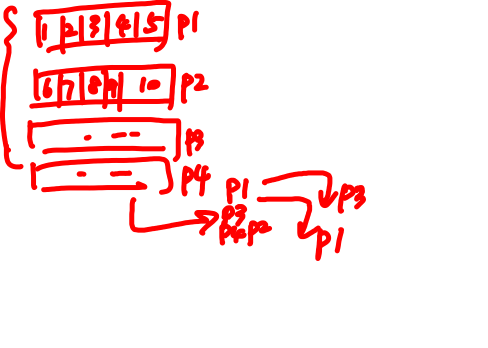 1 2 3 4 5 P1
6 7 8 9 10 P2
P3
P4
P1
P3 P3
P4 P2 P1